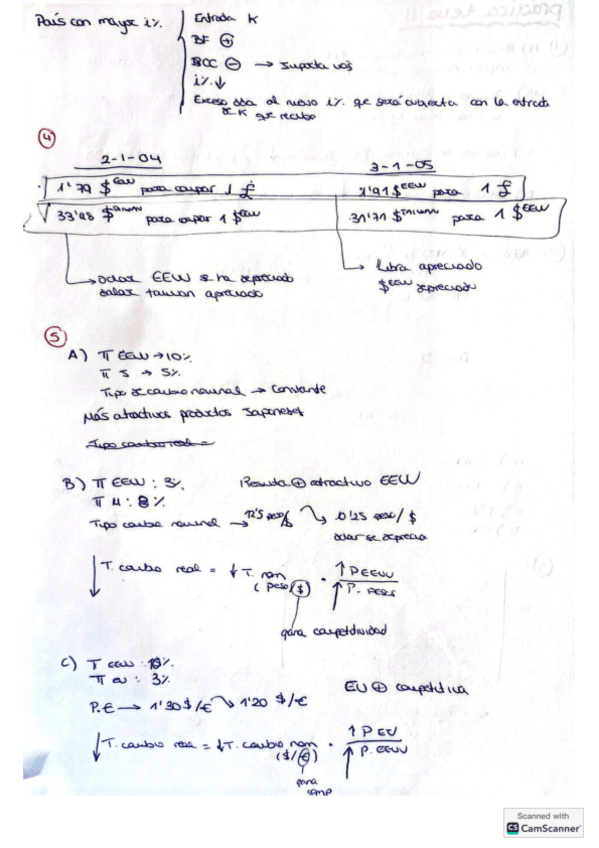 País con mayor i%.
Entrada K
BF ⊕
BCC ⊖ → Suparla
i% ↓
Exceso al nuevo i% que será cubierta con la entrada
de K que recibo
④
2-1-04
3-1-05
1'79 $ EEUU para comprar 1 £
1'91 $ EEUU para 1 £
33'98 $ TAIWAN para comprar 1 $ EEUU
31'71 $ TAIWAN para 1 $ EEUU
→ dólar EEUU se ha depreciado
dólar taiwan apreciado
→ Libra apreciado
$ EEUU depreciado
⑤
A) π EEUU → 10%.
π J → 5%.
Tipo de cambio nominal → Constante
Más atractivos productos Japoneses
Tipo cambio real =
B) π EEUU : 3%
Resulta ⊕ atractivo EEUU
π M : 8%
Tipo cambio nominal → 12'5 peso/$ ↘ 0'25 peso/$
dólar se deprecia
↓ T. cambio real = ↓ T. nom (peso/$) · ↑ P EEUU / ↑ P.
gana competitividad
C) π EEUU : 10%.
π EU : 3%
EU ⊕ competitiva
P.E → 1'30 $/€ ↘ 1'20 $/€
↓ T. cambio real = ↓ T. cambio nom ($/€) · ↑ P EU / ↑ P. EEUU
gana
comp
Scanned with
CS CamScanner